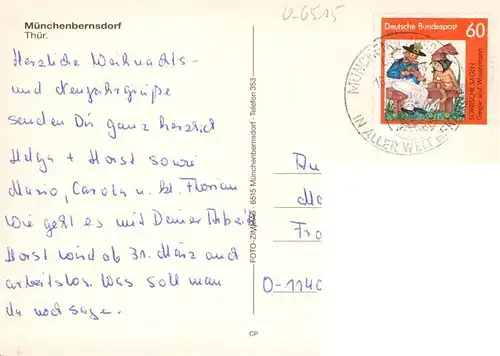 Münchenbernsdorf
Thür.
Herzliche Weihnachts-
und Neujahrsgrüße
senden Dir ganz herzlich
Helga + Horst sowie
Mario, Carola u. kl. Florian
Wie geht es mit Deiner Arbeit
Horst wird ab 31. März auch
arbeitslos. Was soll man
da noch sagen.
FOTO-ZIMMER · 6515 Münchenbernsdorf - Telefon 353
CP
0-6515
Deutsche Bundespost 60
SORBISCHE SAGEN
Geiger und Wassermann
MÜNCHEN
IN ALLER WELT
Fra
O-1140